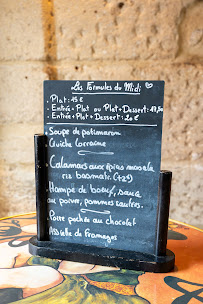 Les Formules du Midi
. Plat : 15 €
. Entrée + Plat ou Plat + Dessert : 17,50
. Entrée + Plat + Dessert : 20 €
. Soupe de potimarron
. Quiche Lorraine
. Calamars aux épices masala
riz basmati. (+2€)
. Hampe de boeuf, sauce
au poivre, pommes sautées.
. Poire pochée au chocolat
. Assiette de Fromages